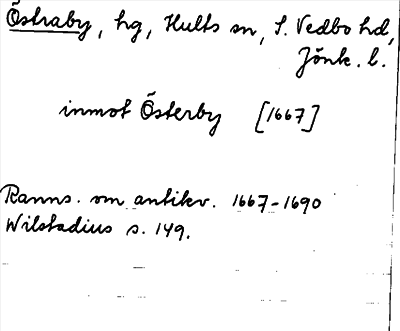 Östraby, hg, Hults sn, S. Vedbo hd,
Jönk. l.
inmot Österby [1667]
Ranns. om antikv. 1667-1690
Wilstadius s. 149.